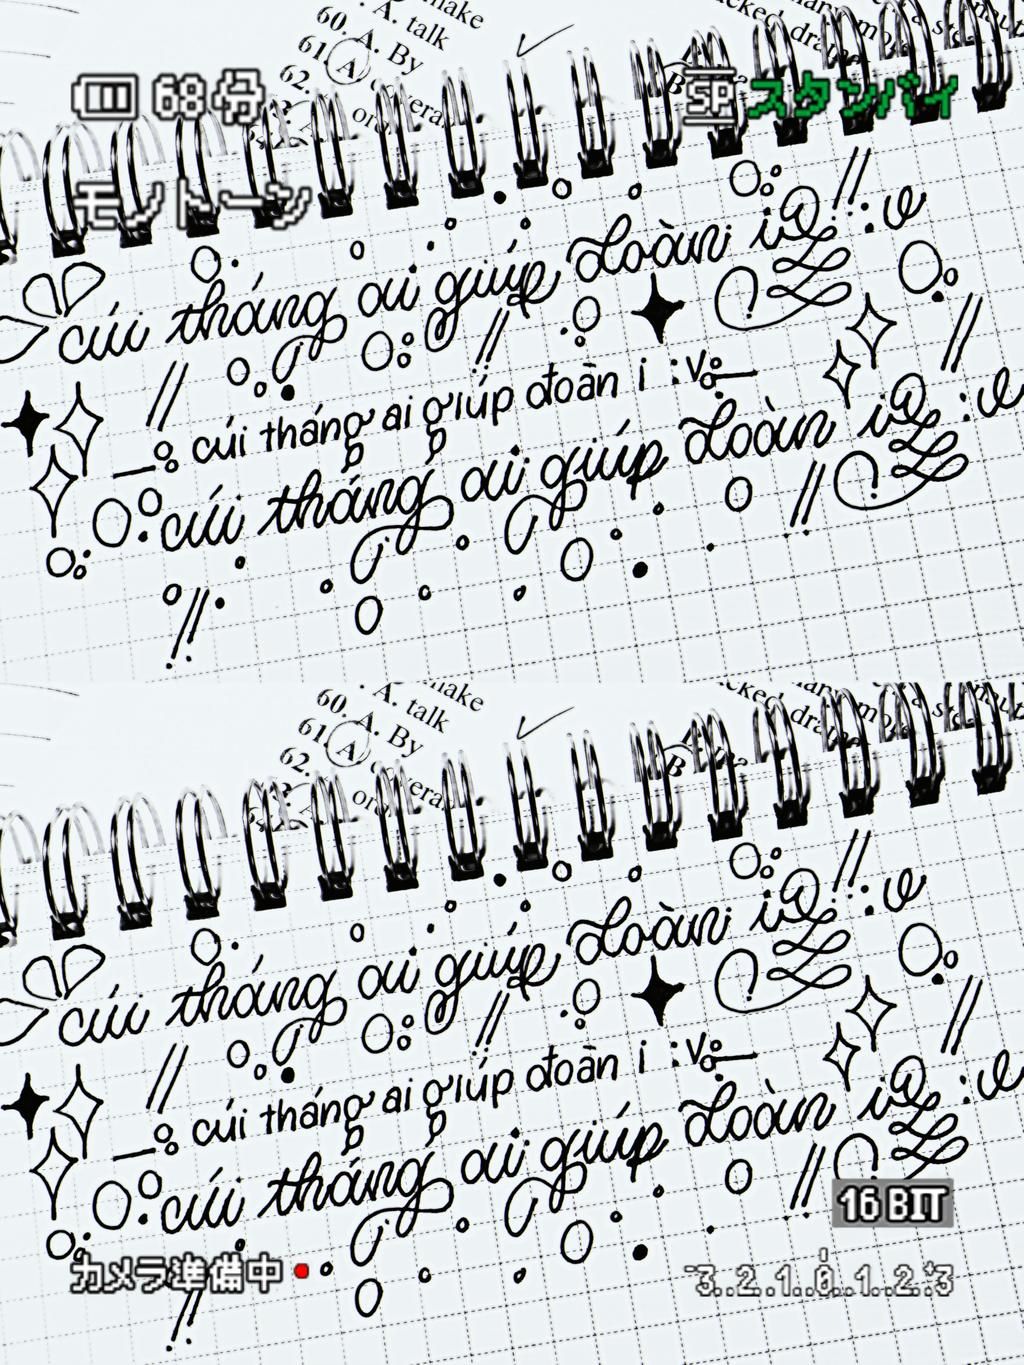 make
A. talk
60. A. By
61. A
62.
68分
SP スタンバイ
モノトーン
cúi tháng ai giúp đoàn i :v
cúi tháng ai giúp đoàn i :v
cúi tháng ai giúp đoàn i :v
make
A. talk
60. A. By
61. A
62.
B
cúi tháng ai giúp đoàn i :v
cúi tháng ai giúp đoàn i :v
cúi tháng ai giúp đoàn i :v
16 BIT
カメラ準備中
-3..2..1..0..1..2.+3